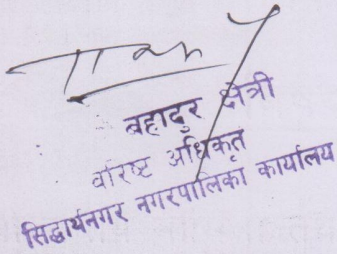 बहादुर क्षेत्री
वरिष्ट अधिकृत
सिद्धार्थनगर नगरपालिका कार्यालय